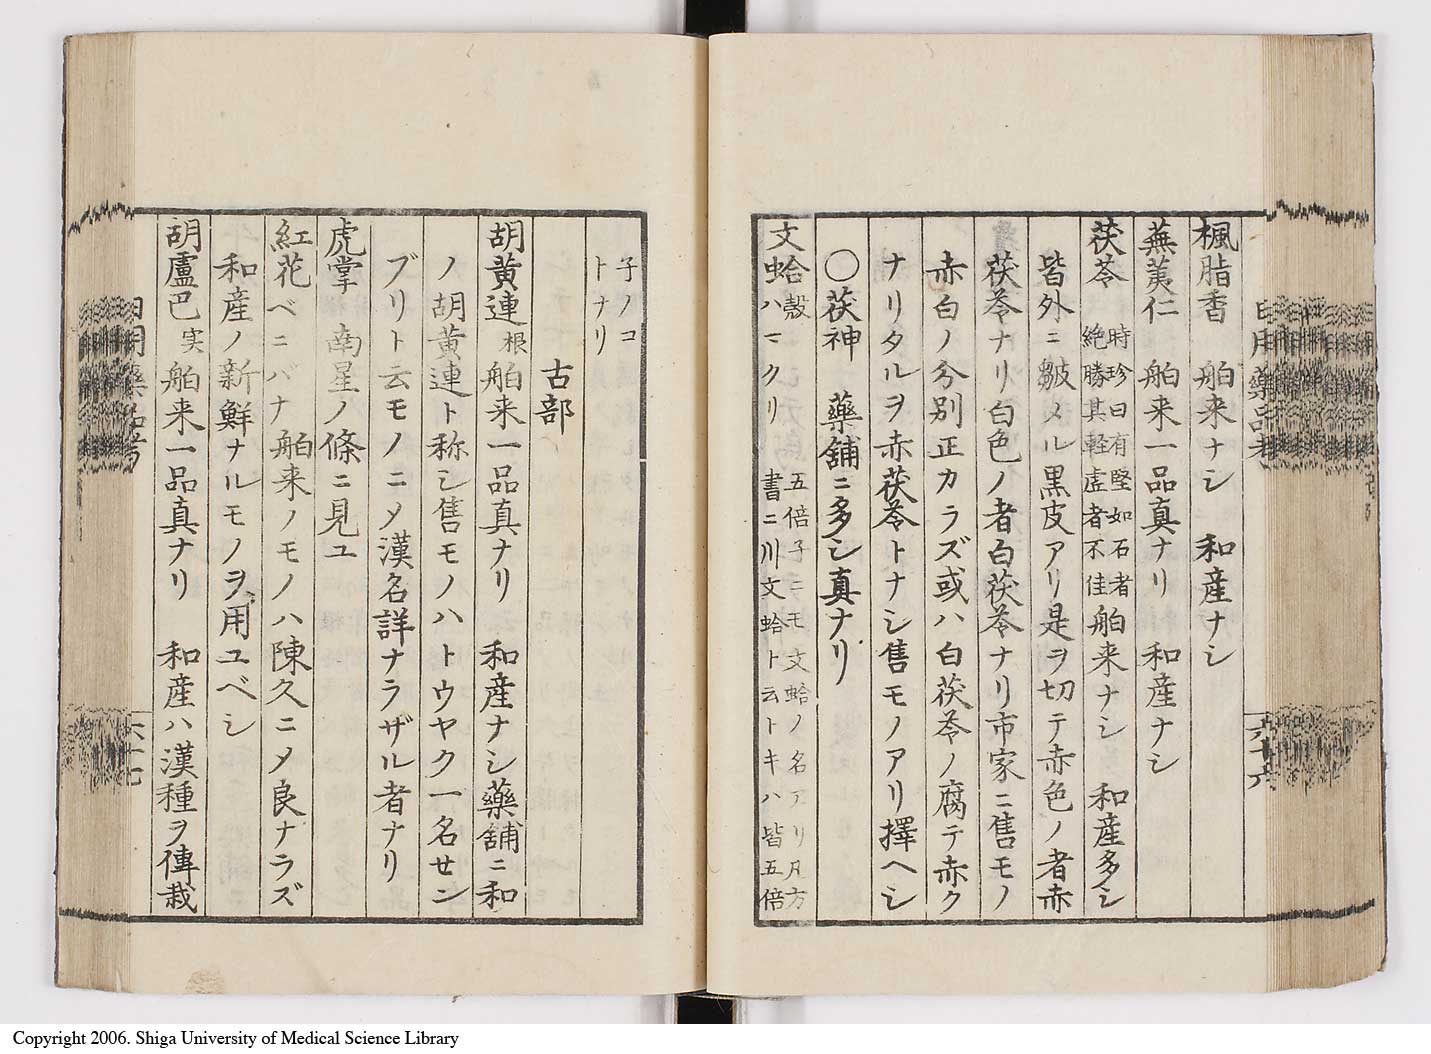 楓脂香　舶来ナシ　和産ナシ
蕪荑仁　舶来一品真ナリ　和産ナシ
茯苓　時珍曰有堅如石者
絶勝其軽虚者不佳　舶来ナシ　和産多シ
皆外ニ皺メル黒皮アリ是ヲ切テ赤色ノ者赤
茯苓ナリ白色ノ者白茯苓ナリ市家ニ售モノ
赤白ノ分別正カラズ或ハ白茯苓ノ腐テ赤ク
ナリタルヲ赤茯苓トナシ售モノアリ擇ヘシ
〇茯神　藥舗ニ多シ真ナリ
文蛤　殻
ハマクリ　五倍子ニモ文蛤ノ名アリ月方
書ニ川文蛤ト云トキハ皆五倍
子ノコ
トナリ
古部
胡黄連　根　舶来一品真ナリ　和産ナシ藥舗ニ和
ノ胡黄連ト称シ售モノハトウヤク一名せン
ブリト云モノニメ漢名詳ナラザル者ナリ
虎掌　南星ノ條ニ見ユ
紅花　ベニバナ　舶来ノモノハ陳久ニメ良ナラズ
和産ノ新鮮ナルモノヲ用ユベシ
胡盧巴　実　舶来一品真ナリ　和産ハ漢種ヲ傳栽
日用藥品考
六十六
日用藥品考
六十七
Copyright 2006. Shiga University of Medical Science Library